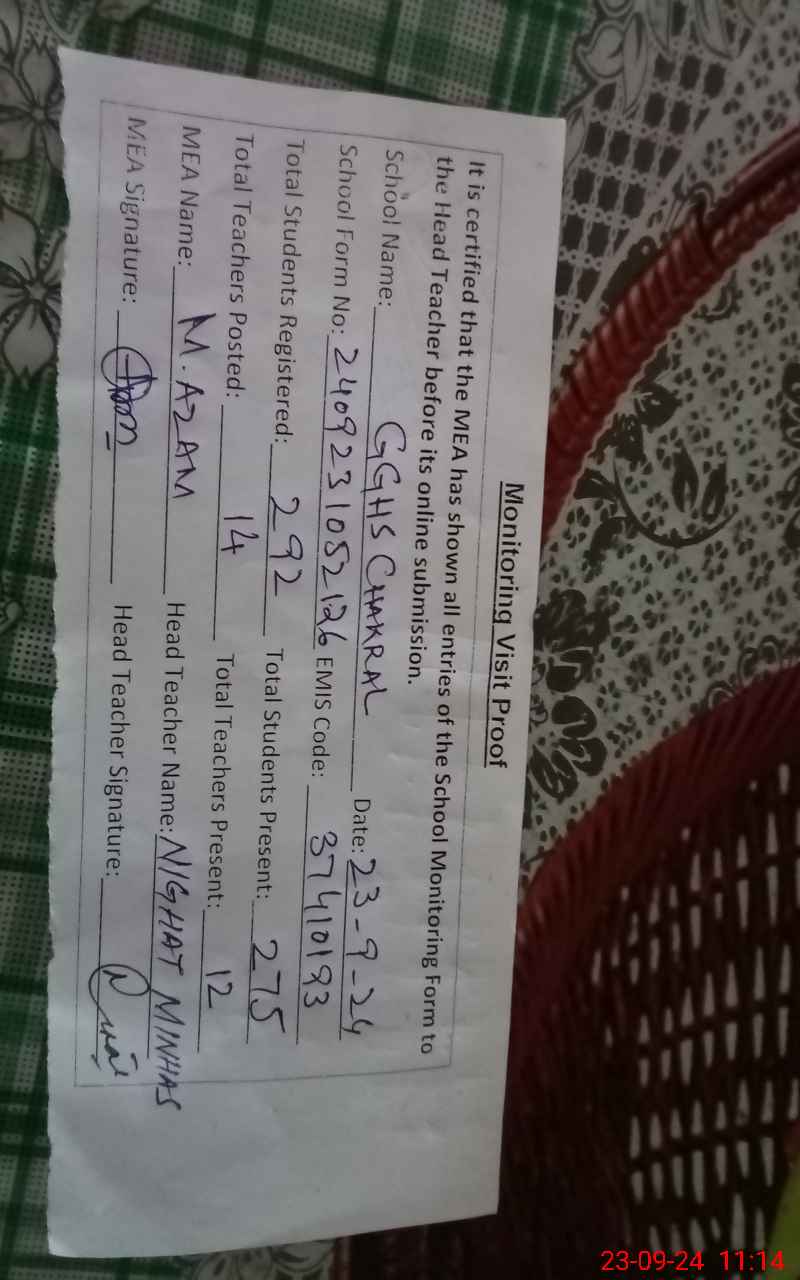 Monitoring Visit Proof
It is certified that the MEA has shown all entries of the School Monitoring Form to
the Head Teacher before its online submission.
School Name: GGHS CHAKRAL Date: 23-9-24
School Form No: 2409231052126 EMIS Code: 37410193
Total Students Registered: 292 Total Students Present: 275
Total Teachers Posted: 14 Total Teachers Present: 12
MEA Name: M. AZAM Head Teacher Name: NIGHAT MINHAS
MEA Signature: Head Teacher Signature:
23-09-24 11:14